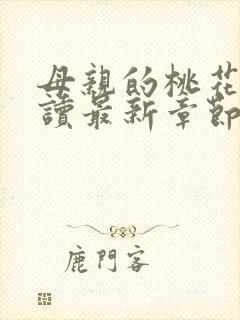 母親的桃花
讀最新章節
鹿門客